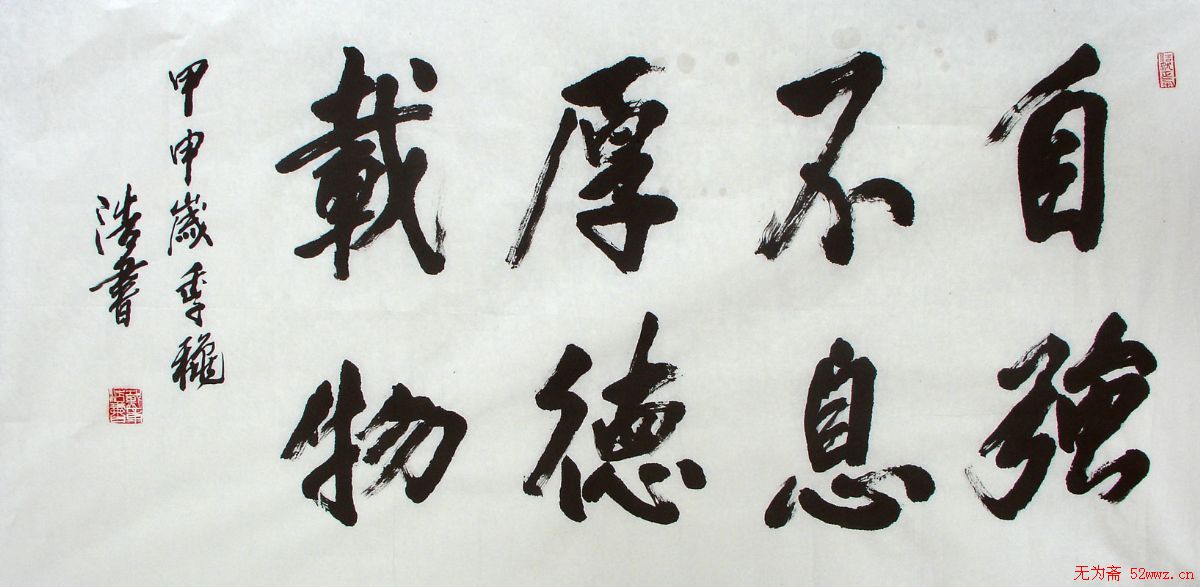 自強
不息
厚德
載物
甲申歲季穐
浩書
无为斋 52wwz.cn